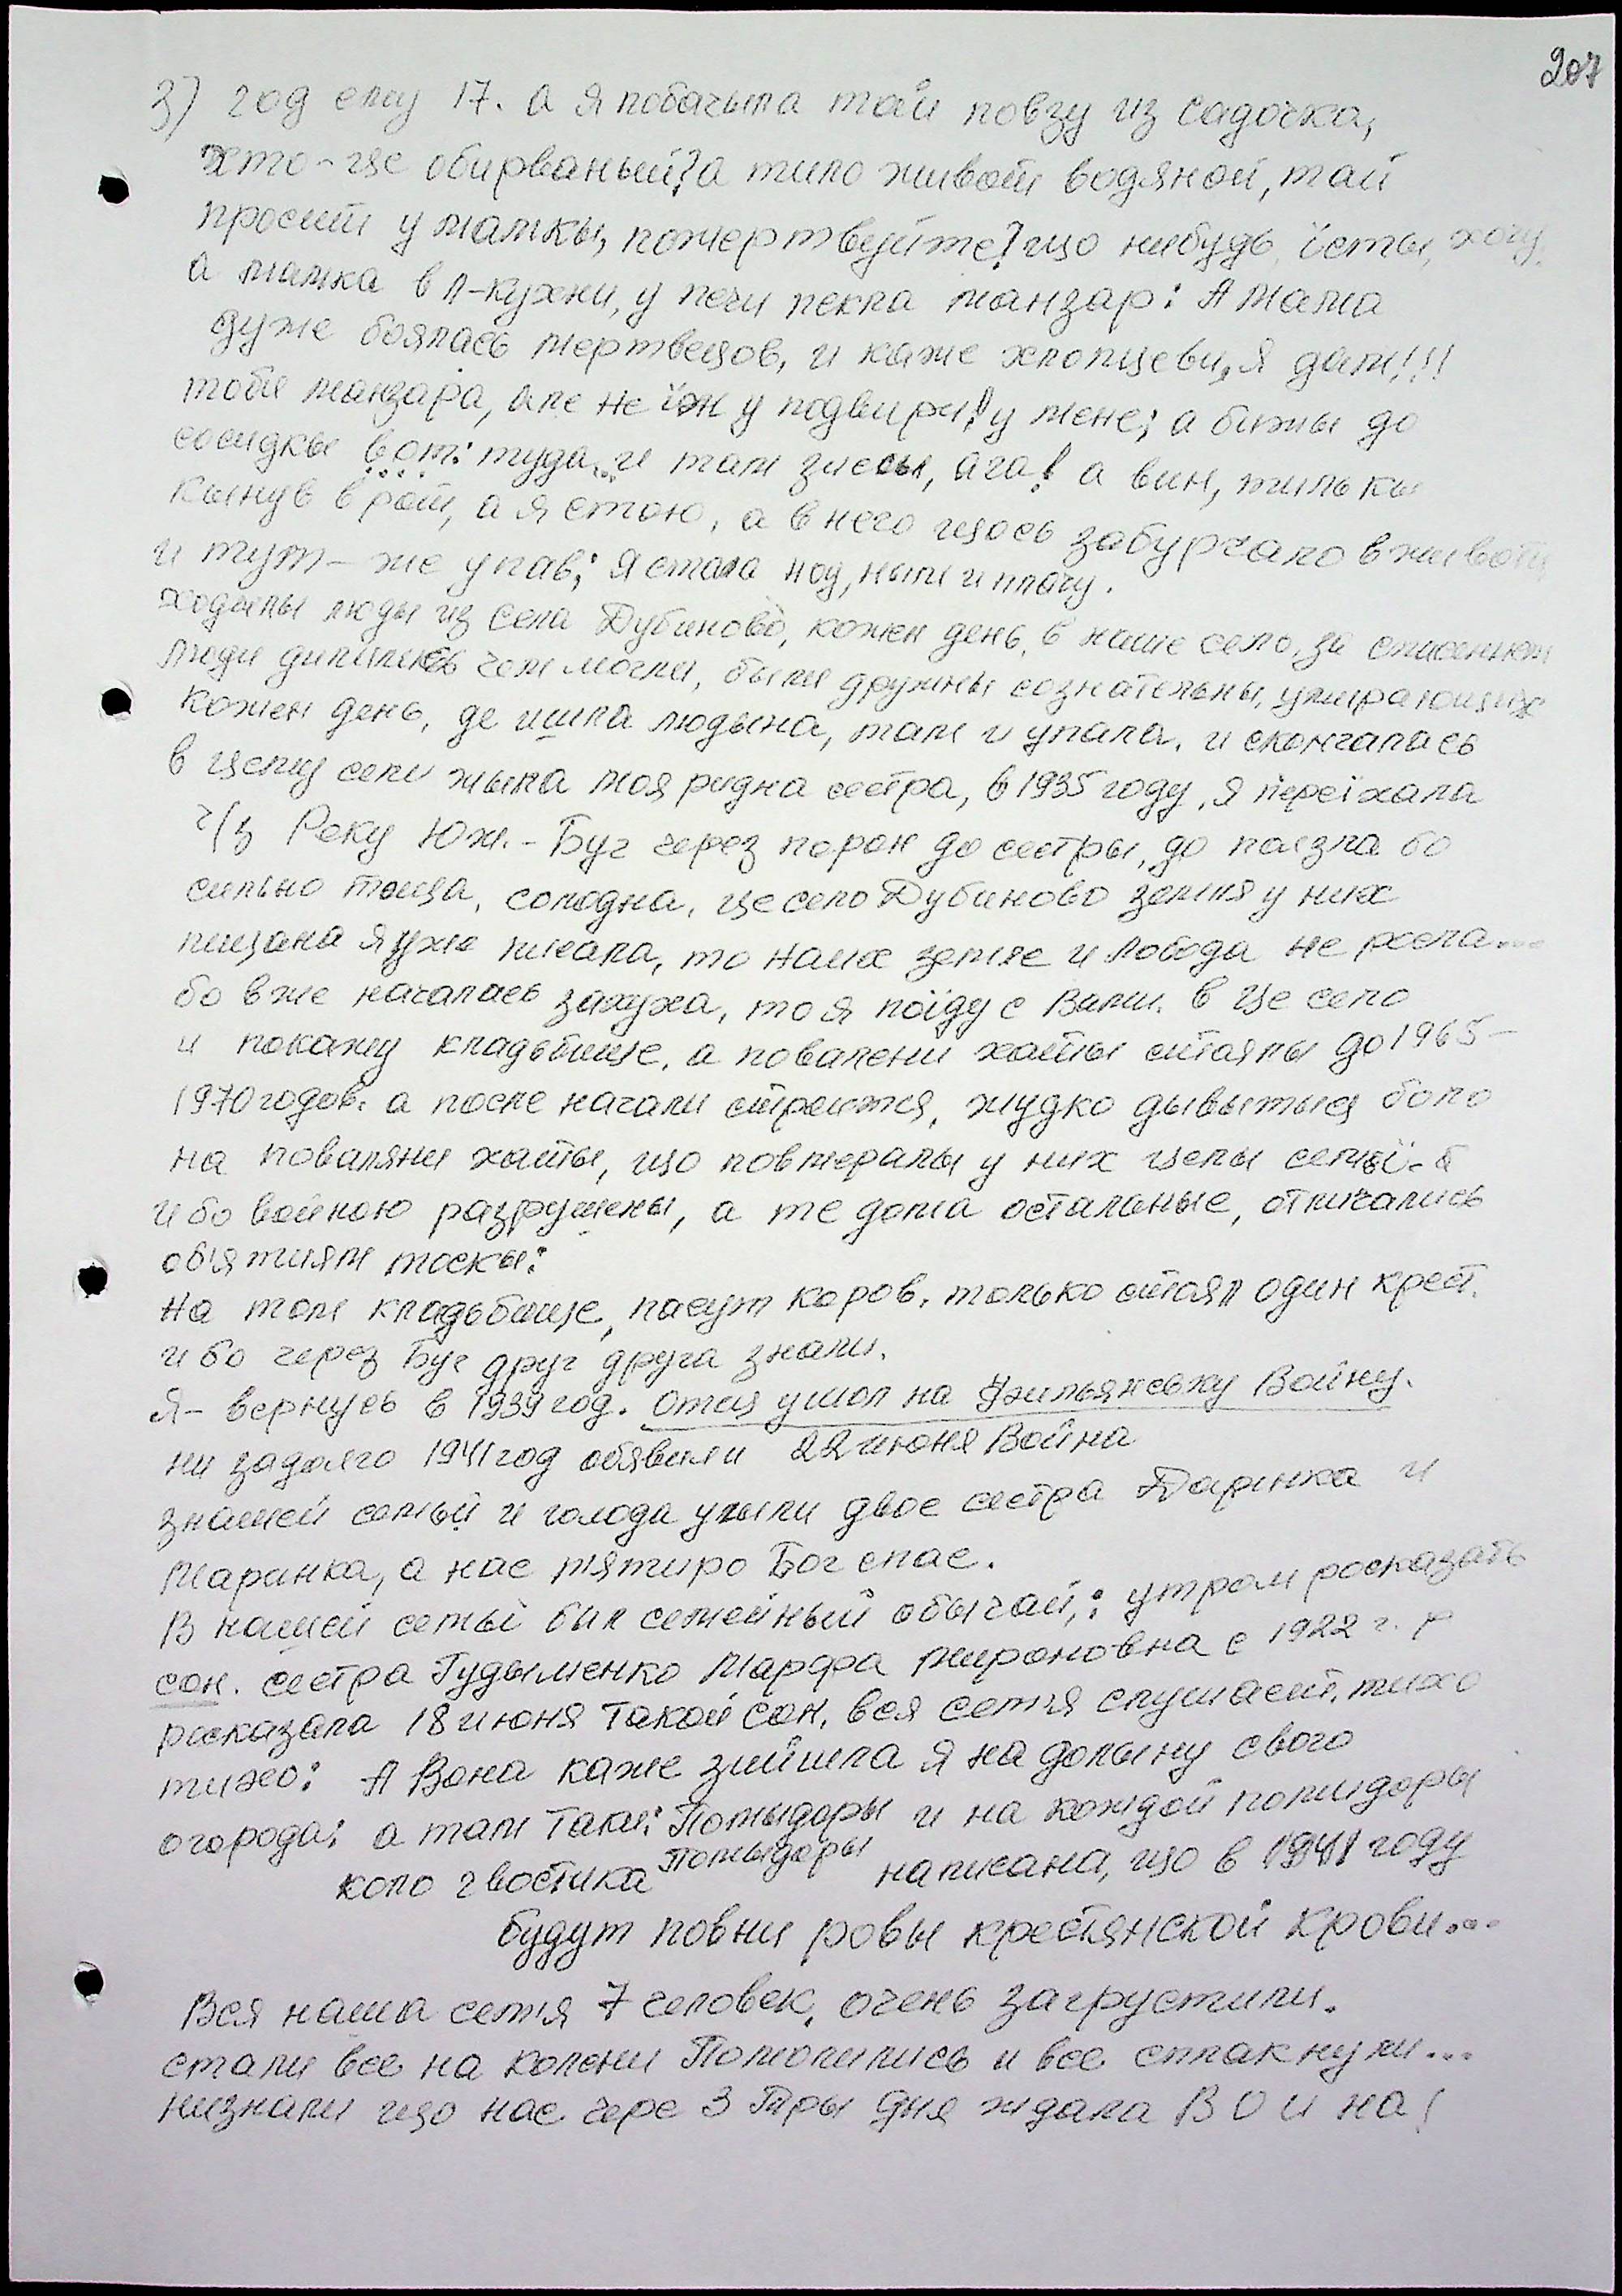 207
3) год ему 17. а я побачыла тай повзу из садочка,
хто-це обирваный? а тило живот водяной, тай
просит у мамкы, пожертвуйте! що нибудь їсты, хочу.
а мамка в л-кухни, у печи пекла манзар: А мама
дуже боялась мертвецов, и каже хлопцеви, я дам!!!
тоби манзара, але не їж у подвири! у мене; а бижы до
сосидкы вот: туда, и там зиесы, ага! а вин, тилькы
кынув в рот, а я стою, а в него щось забурчало в животи
и тут-же упав; Я стала ноу, ныти и плачу.
ходылы люды из села Дубиново, кожен день, в наше село, за спасением
люди дилились чем могли, были дружны сознательны, умирающих
кожен день, де ишла людына, там и упала. и скончалась
в цему сели жыла моя ридна сестра, в 1935 году, я переїхала
ч/з Реку Юж.-Буг через паром до сестры, до ползла бо
сильно тоща, голодна, це село Дубиново земля у них
пищана я уже писала, то на их земле и лобода не росла...
бо вже началась засуха, то я поїду с Вами. в це село
и покажу кладьбище, а повалени хаты стоялы до 1965-
1970 годов. а после начали строится, жудко дывытыся було
на поваляни хаты, що повмералы у них целы семьї-б
и бо войною разрушены, а те дома остальные, отличались
обятиям тоскы:
На том кладьбище, пасут коров. только стоял один крест.
и бо через Буг друг друга знали.
Я- вернусь в 1939 год. Отец ушол на Филяньску Войну.
ни задолго 1941 год обявили 22 июня Война
знашей семьи и голода умыли двое сестра Даринка и
Маринка, а нас пятиро Бог спас.
В нашей семьї бил семейный обычай,: утром росказать
сон. сестра Гудыменко Марфа Мироновна с 1922 г. р
росказала 18 июня такой сон. вся семя слушает, тихо
тихо: А Вона каже зийшла я на долыну свого
огорода; а там таки: Помыдоры и на кождой помидоры
коло хвостика Помыдоры написана, що в 1941 году
будут повни ровы крестянской крови...
Вся наша семя 7 человек, очень загрустили.
стали все на колени Помолились и все сплакнули...
низнали що нас чере 3 Тры дня ждала ВОйна!